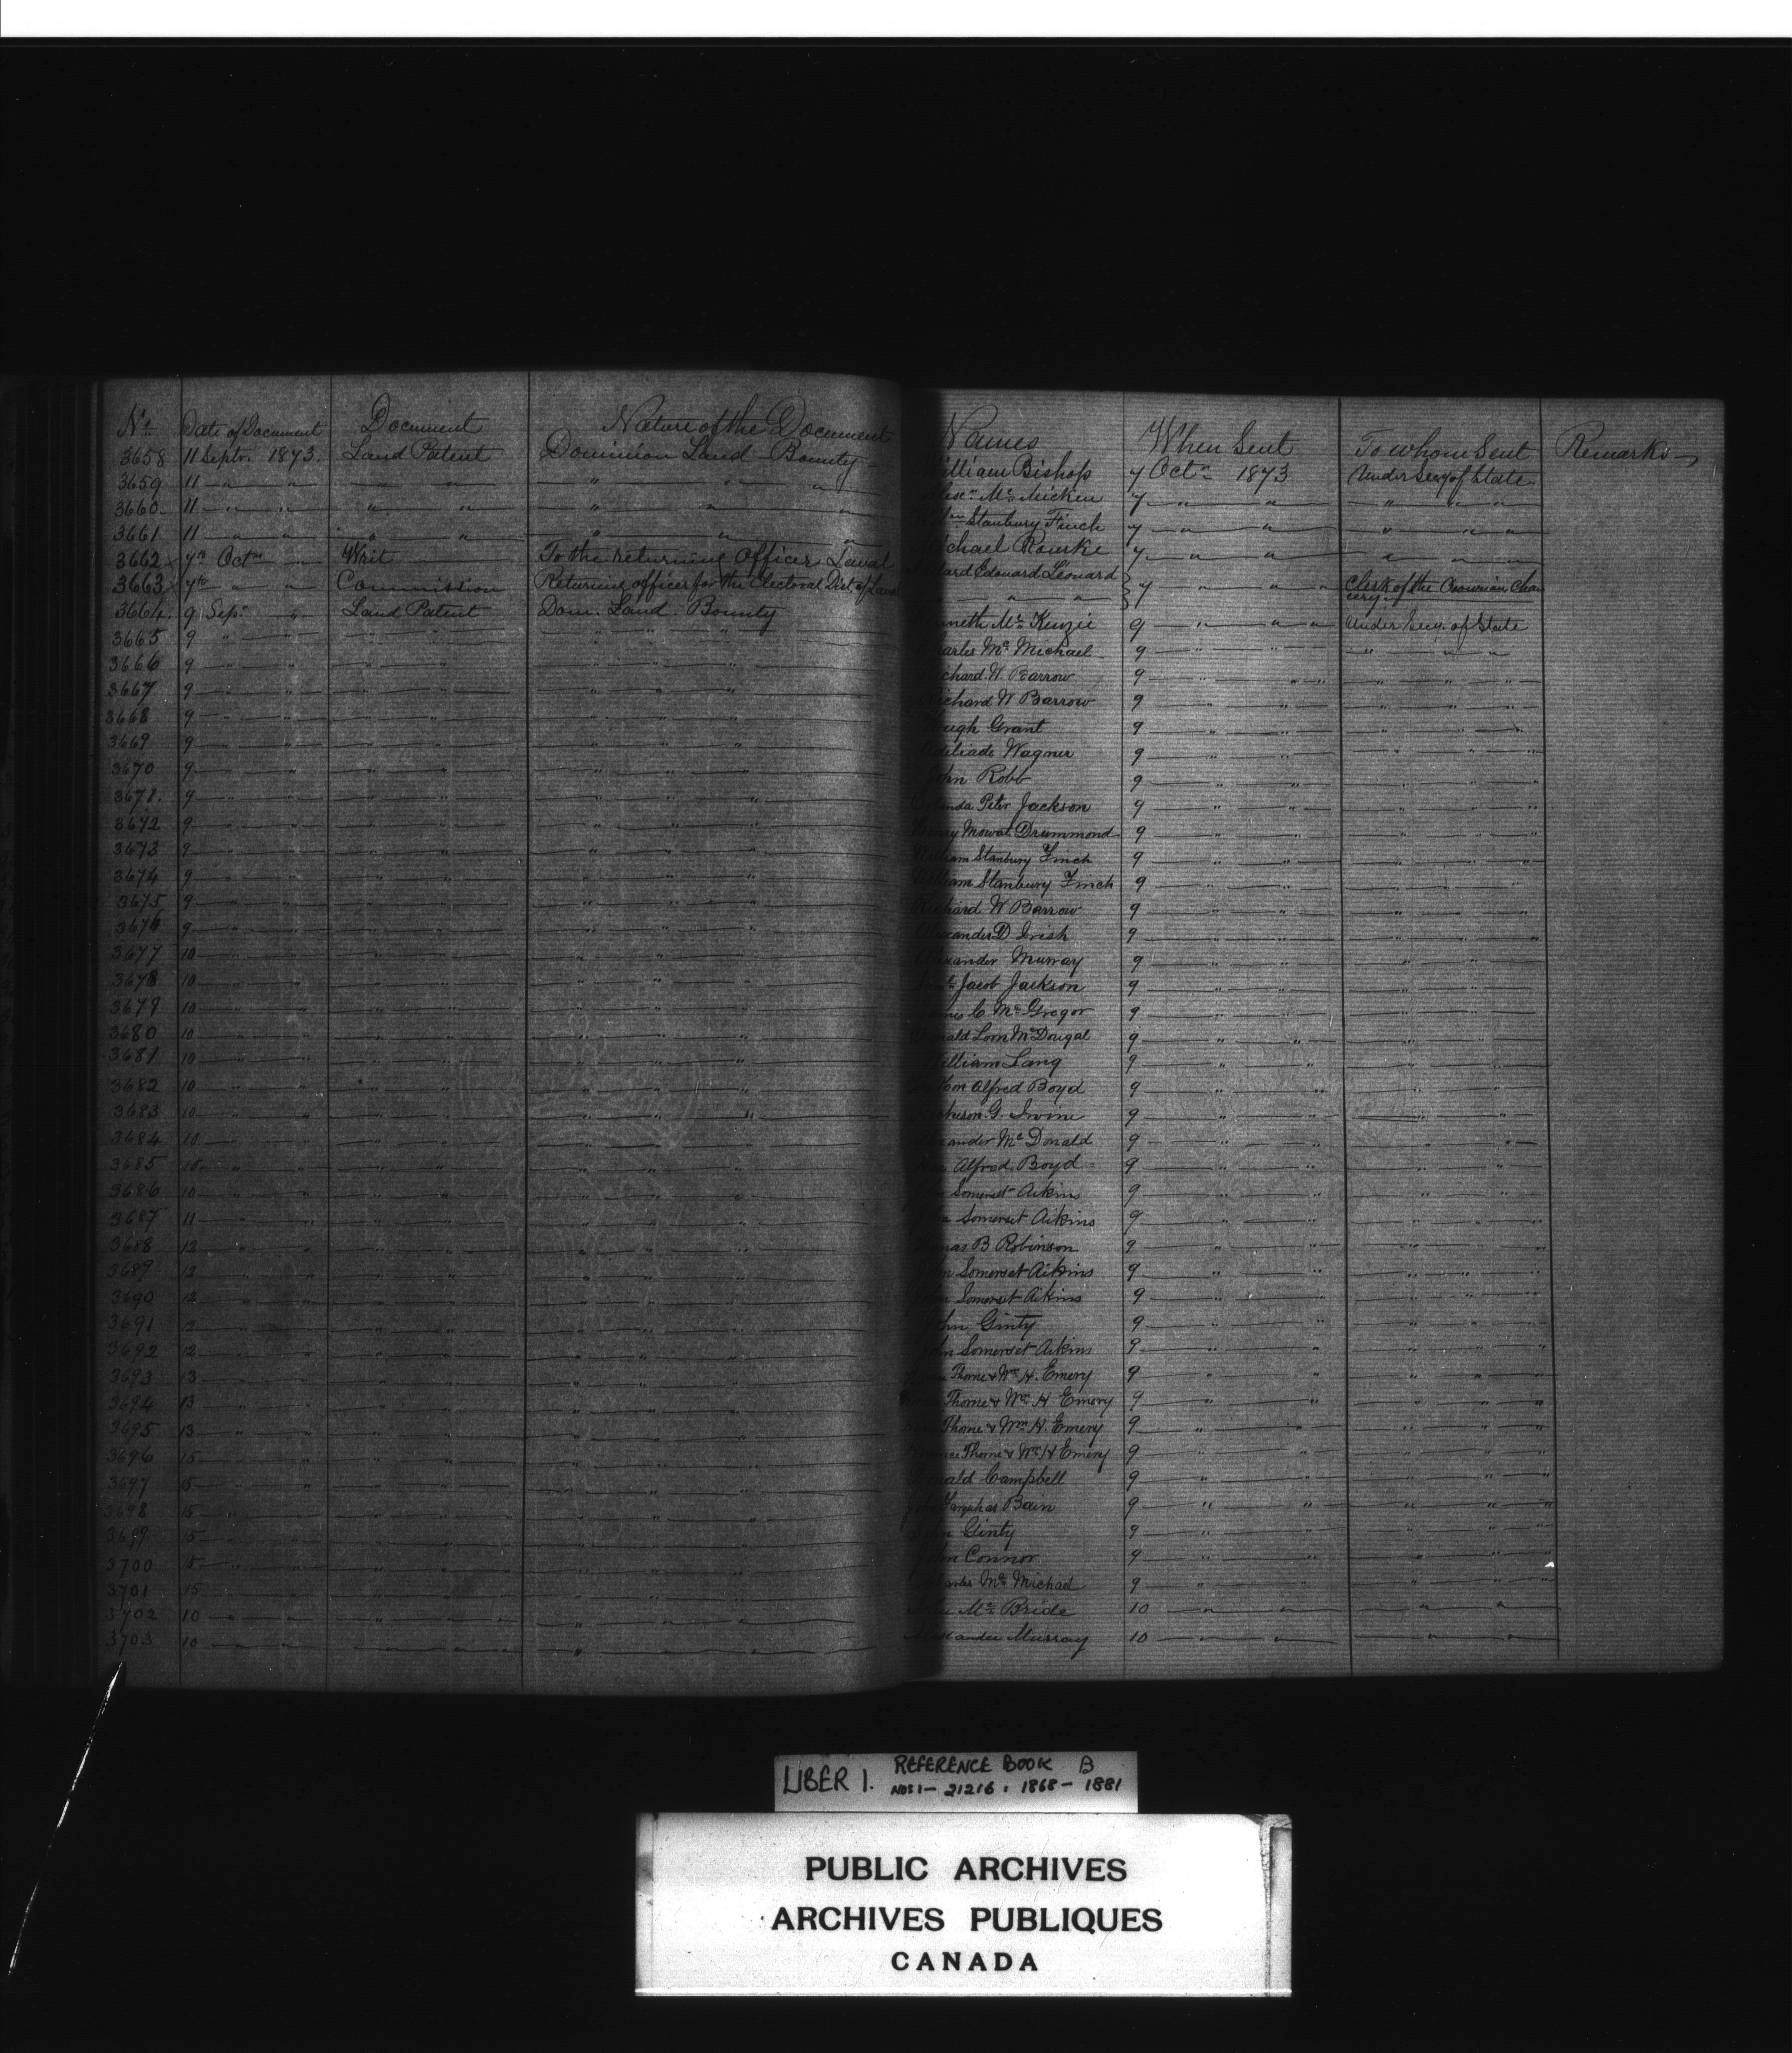 No. Date of Document Document Nature of the Document Names When Sent To whom Sent Remarks
3658 11 Septr. 1873. Land Patent Dominion Land Bounty illiam Bishop 7 Octr 1873 Under Secy of State
3659 11 " " " " " " Mc Micken 7 " " " " "
3660 11 " " " " " " " Stanbury Finch 7 " " " " "
3661 11 " " " " " " " ichael Rourke 7 " " " " "
3662 x 7th Octr " Writ To the returning Officer Laval Edouard Léonard 7 " " " Clerk of the Crown in Chan
3663 x 7th " " Commission Returning officer for the Electoral Dist. of Laval " " " cery
3664. 9 Sepr. " Land Patent Dom. Land. Bounty nneth Mc Kenzie 9 " " " Under Secy. of State
3665 9 " " " " " " " arles Mc Michael 9 " " " " "
3666 9 " " " " " " " chard W. Barrow 9 " " " " "
3667 9 " " " " " " " ichard W Barrow 9 " " " " "
3668 9 " " " " " " " ugh Grant 9 " " " " "
3669 9 " " " " " " " Wagner 9 " " " " "
3670 9 " " " " " " " hn Robb 9 " " " " "
3671. 9 " " " " " " " Peter Jackson 9 " " " " "
3672 9 " " " " " " " Mowat Drummond 9 " " " " "
3673 9 " " " " " " " lliam Stanbury Finch 9 " " " " "
3674 9 " " " " " " " illiam Stanbury Finch 9 " " " " "
3675 9 " " " " " " " Richard W Barrow 9 " " " " "
3676 9 " " " " " " " exander D Irish 9 " " " " "
3677 10 " " " " " " " exander Murray 9 " " " " "
3678 10 " " " " " " " Jacob Jackson 9 " " " " "
3679 10 " " " " " " " mes C Mc Gregor 9 " " " " "
3680 10 " " " " " " " nald Lorn McDougal 9 " " " " "
3681 10 " " " " " " " illiam Lang 9 " " " " "
3682 10 " " " " " " " Hon Alfred Boyd 9 " " " " "
3683 10 " " " " " " " G. Irvine 9 " " " " "
3684 10 " " " " " " " exander Mc Donald 9 " " " " "
3685 10 " " " " " " " Alfred Boyd 9 " " " " "
3686 10 " " " " " " " Somerset Aikins 9 " " " " "
3687 11 " " " " " " " Somerset Aikins 9 " " " " "
3688 12 " " " " " " " omas B Robinson 9 " " " " "
3689 12 " " " " " " " n Somerset Aikins 9 " " " " "
3690 12 " " " " " " " Somerset Aikins 9 " " " " "
3691 12 " " " " " " " hn Ginty 9 " " " " "
3692 12 " " " " " " " hn Somerset Aikins 9 " " " " "
3693 13 " " " " " " " Thorne & Wm H. Emery 9 " " " " "
3694 13 " " " " " " " Thorne & Wm H Emery 9 " " " " "
3695 13 " " " " " " " Thorne & Wm H. Emery 9 " " " " "
3696 15 " " " " " " " Thorne & Wm H Emery 9 " " " " "
3697 15 " " " " " " " nald Campbell 9 " " " " "
3698 15 " " " " " " " Farquhar Bain 9 " " " " "
3699 15 " " " " " " " hn Ginty 9 " " " " "
3700 15 " " " " " " " hn Connor 9 " " " " "
3701 15 " " " " " " " arles Mc Michael 9 " " " " "
3702 10 " " " " " " " Mc Bride 10 " " " "
3703 10 " " " " " " " exander Murray 10 " " " "
LIBER 1. REFERENCE BOOK B
NOS 1 - 21216. 1868 - 1881
PUBLIC ARCHIVES
ARCHIVES PUBLIQUES
CANADA